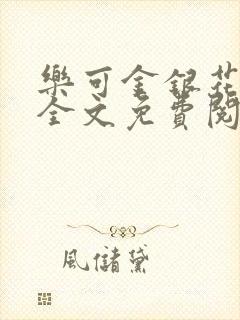 樂可金銀花
全文免費閱
風儲黛